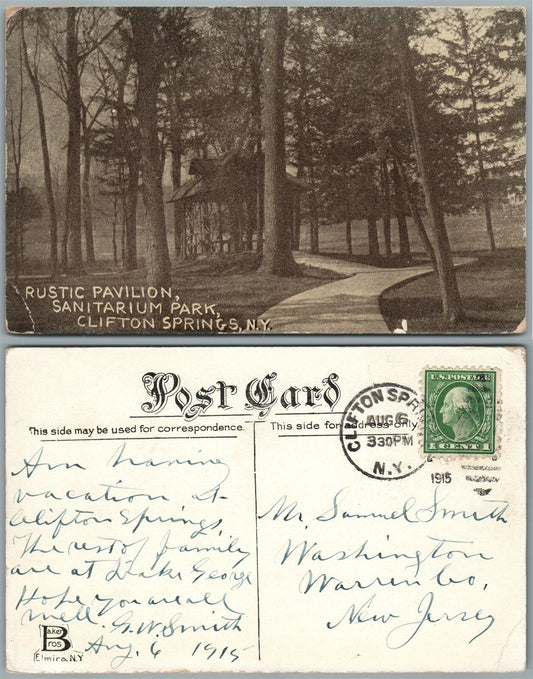 RUSTIC PAVILION,
SANITARIUM PARK,
CLIFTON SPRINGS, N.Y.
Post Card
This side may be used for correspondence.
This side for address only.
CLIFTON SPR
AUG 6
330PM
N.Y.
1915
U.S. POSTAGE
1 CENT 1
Am having
vacation at
Clifton Springs,
The rest of family
are at Lake George
Hope you are all
well. G. W. Smith
Aug, 6 1915
Mr. Samuel Smith
Washington
Warren Co,
New Jersey
Baker Bros
Elmira N.Y